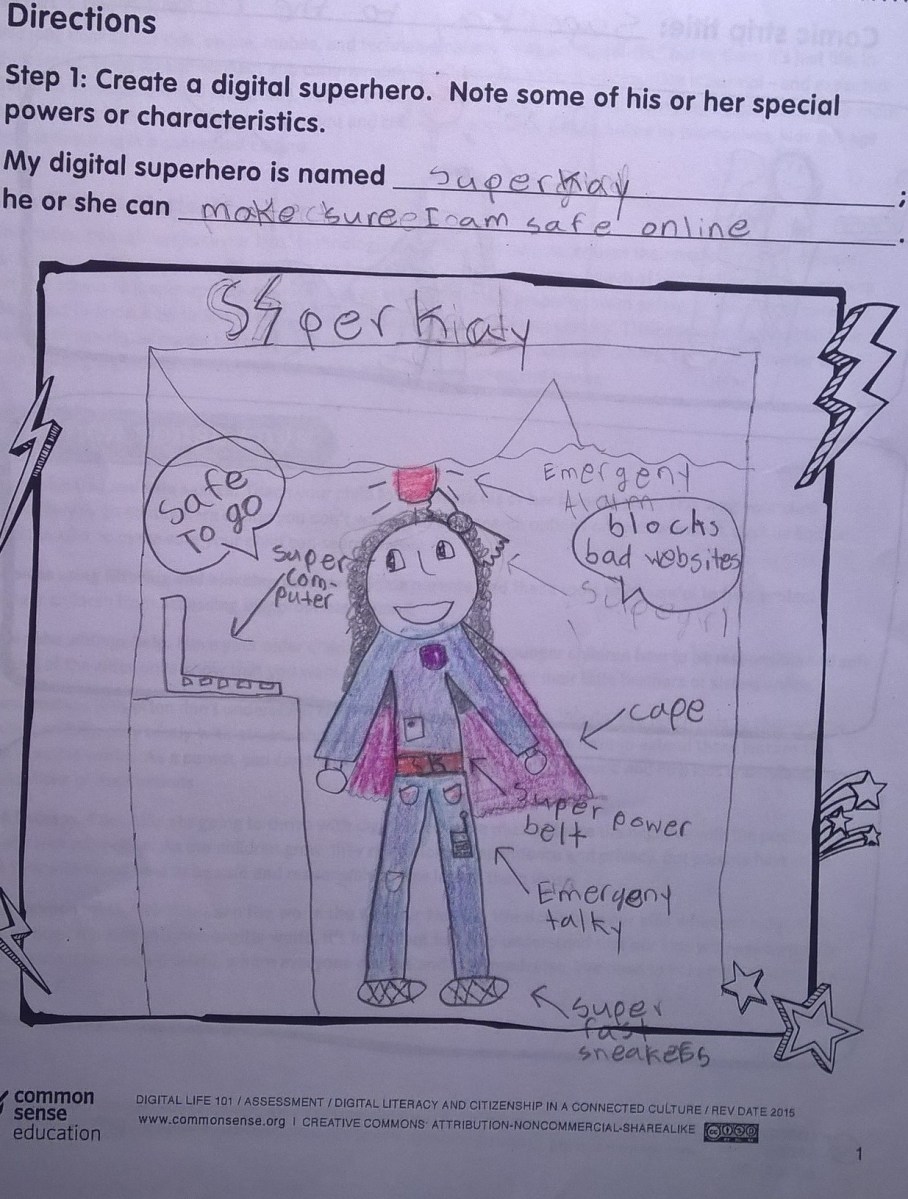 Directions
Step 1: Create a digital superhero. Note some of his or her special
powers or characteristics.
My digital superhero is named superkiay ;
he or she can make sure I am safe online .
Super Kiaty
Safe
To go
Emergeny
Alarm
blocks
bad websites
super
com-
puter
cape
super power
belt
Emergeny
talky
SK
super
fast
sneakers
common
sense
education
DIGITAL LIFE 101 / ASSESSMENT / DIGITAL LITERACY AND CITIZENSHIP IN A CONNECTED CULTURE / REV DATE 2015
www.commonsense.org | CREATIVE COMMONS: ATTRIBUTION-NONCOMMERCIAL-SHAREALIKE
1